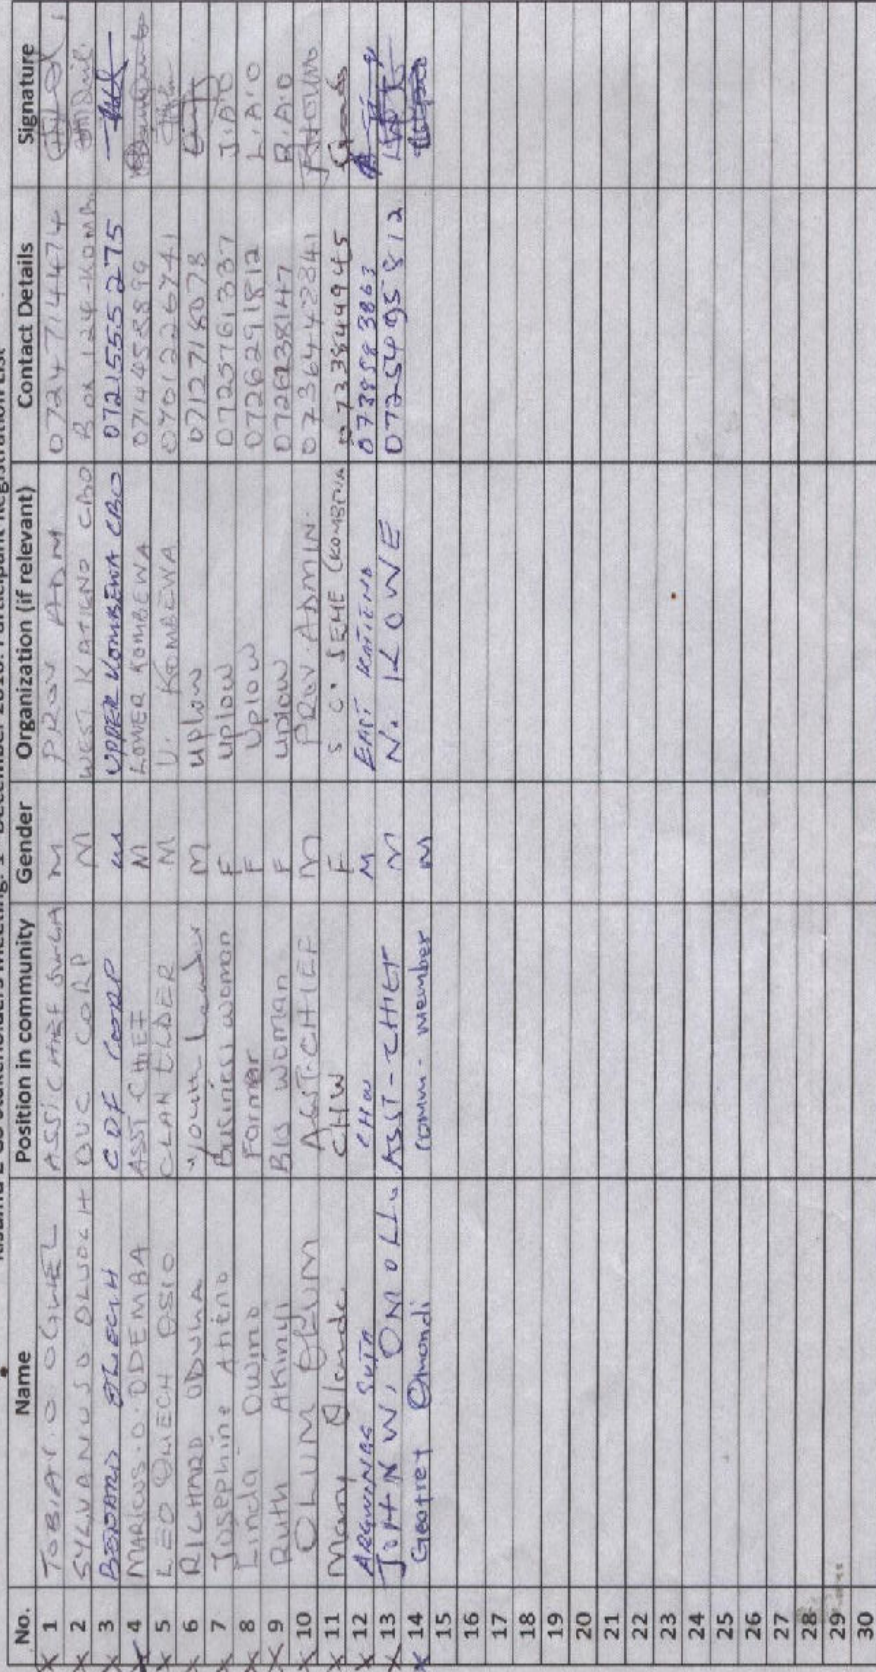 Stakeholders Meeting: 1 December 2010: Participant Registration List
No. Name Position in community Gender Organization (if relevant) Contact Details Signature
X 1 TOBIAS. O OGWEL ASSICHIEF M PROV ADM 0724714474
X 2 SYLVANUS O OLUOCH OVC CORP M WEST KATIENO CBO Box 124-KOMB.
X 3 BEDARD OLECH CDF CORP M UPPER KOMBEWA CBO 0721555275
X 4 MARICUS.O.ODEMBA ASST CHIEF M LOWER KOMBEWA 0714458899
X 5 LEO OLUECH OSIO CLAN ELDER M U. KOMBEWA 0701226741
X 6 RICHARD ODUWA youth Leader M uplow 0712716078
X 7 Josephine Atieno Business woman F uplow 0725761337 J.A.O
X 8 Linda Owino Farmer F Uplow 0726291812 L.A.O
X 9 Ruth Akinyi BIS WOMAN F uplow 0726138147 R.A.O
X 10 OLUM ASST.CHIEF M PROV.ADMIN. 0736442841
X 11 Mary CHW F S C. SEME (KOMBEWA 0733844945
X 12 ARGWINGS CHW M EAST KATIENO 0739583863
X 13 JOHN W. OMOLLO ASST-CHIEF M N. KOWE 0725495812
X 14 Geofrey Omondi Comm. member M
15
16
17
18
19
20
21
22
23
24
25
26
27
28
29
30